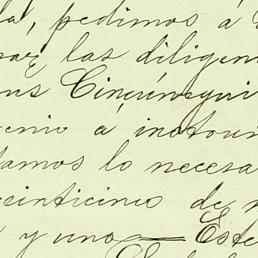 la, pedimos á
las diligen
Cincunegui
enio á instoun
tamos lo necesa
einticinco de
y uno — Este